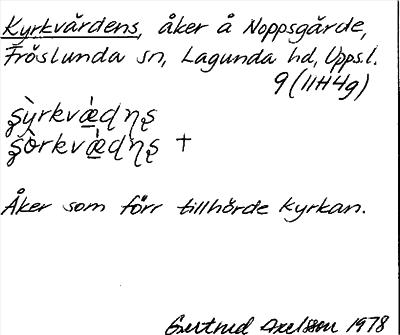 Kyrkvårdens, åker å Noppsgärde,
Fröslunda sn, Lagunda hd, Upps.l.
9 (11H4g)
Åker som förr tillhörde kyrkan.
Gertrud Axelsson 1978